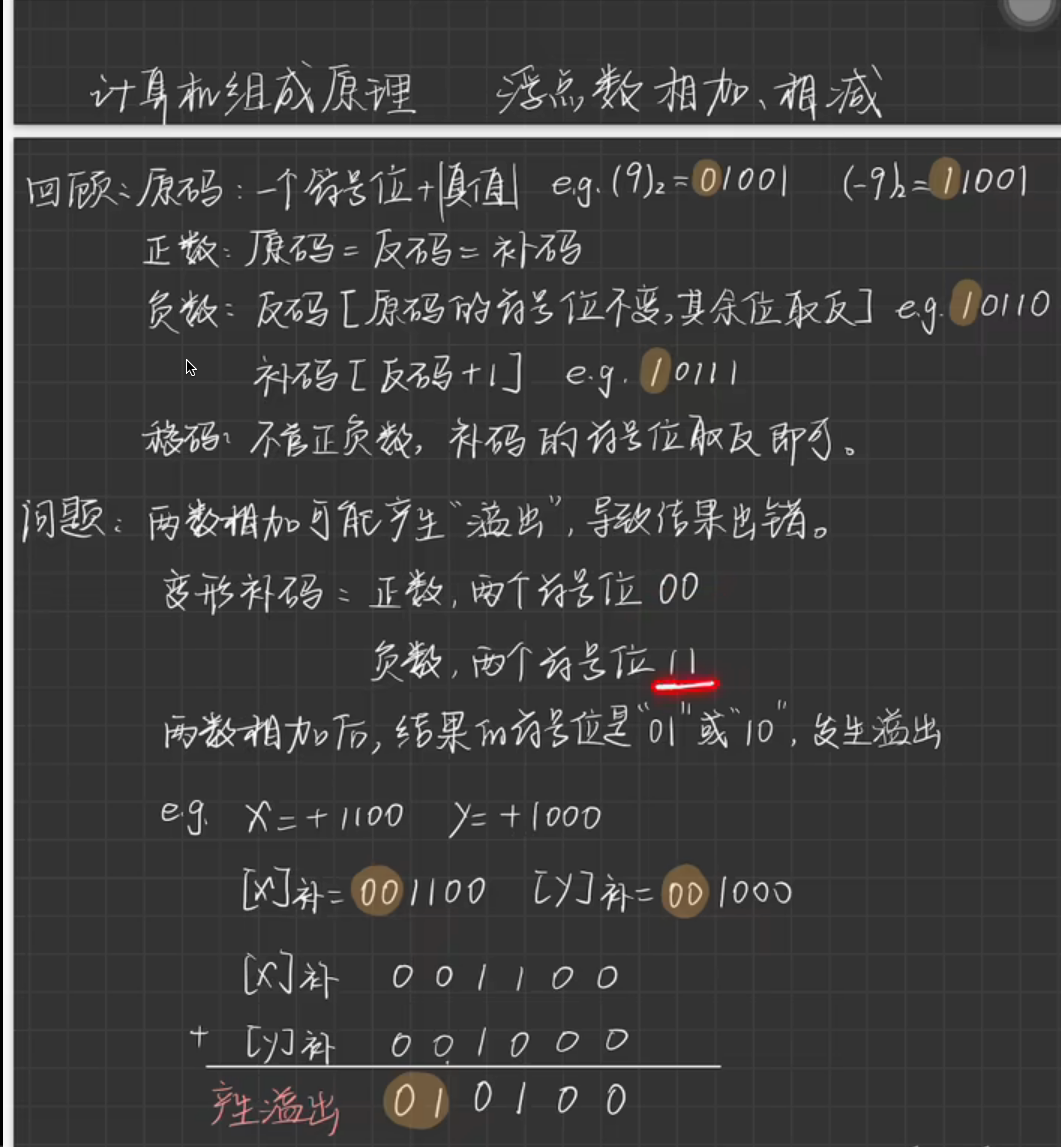 计算机组成原理 浮点数相加、相减
回顾：原码：一个符号位+|真值| e.g. (9)₂=01001 (-9)₂=11001
正数：原码=反码=补码
负数：反码[原码的符号位不变,其余位取反] e.g. 10110
补码[反码+1] e.g. 10111
移码：不管正负数，补码的符号位取反即可。
问题：两数相加可能产生“溢出”，导致结果出错。
变形补码：正数，两个符号位 00
负数，两个符号位 11
两数相加后，结果的符号位是“01”或“10”，发生溢出
e.g. X=+1100 Y=+1000
[X]补=001100 [Y]补=001000
[X]补 0 0 1 1 0 0
+ [Y]补 0 0 1 0 0 0
产生溢出 0 1 0 1 0 0